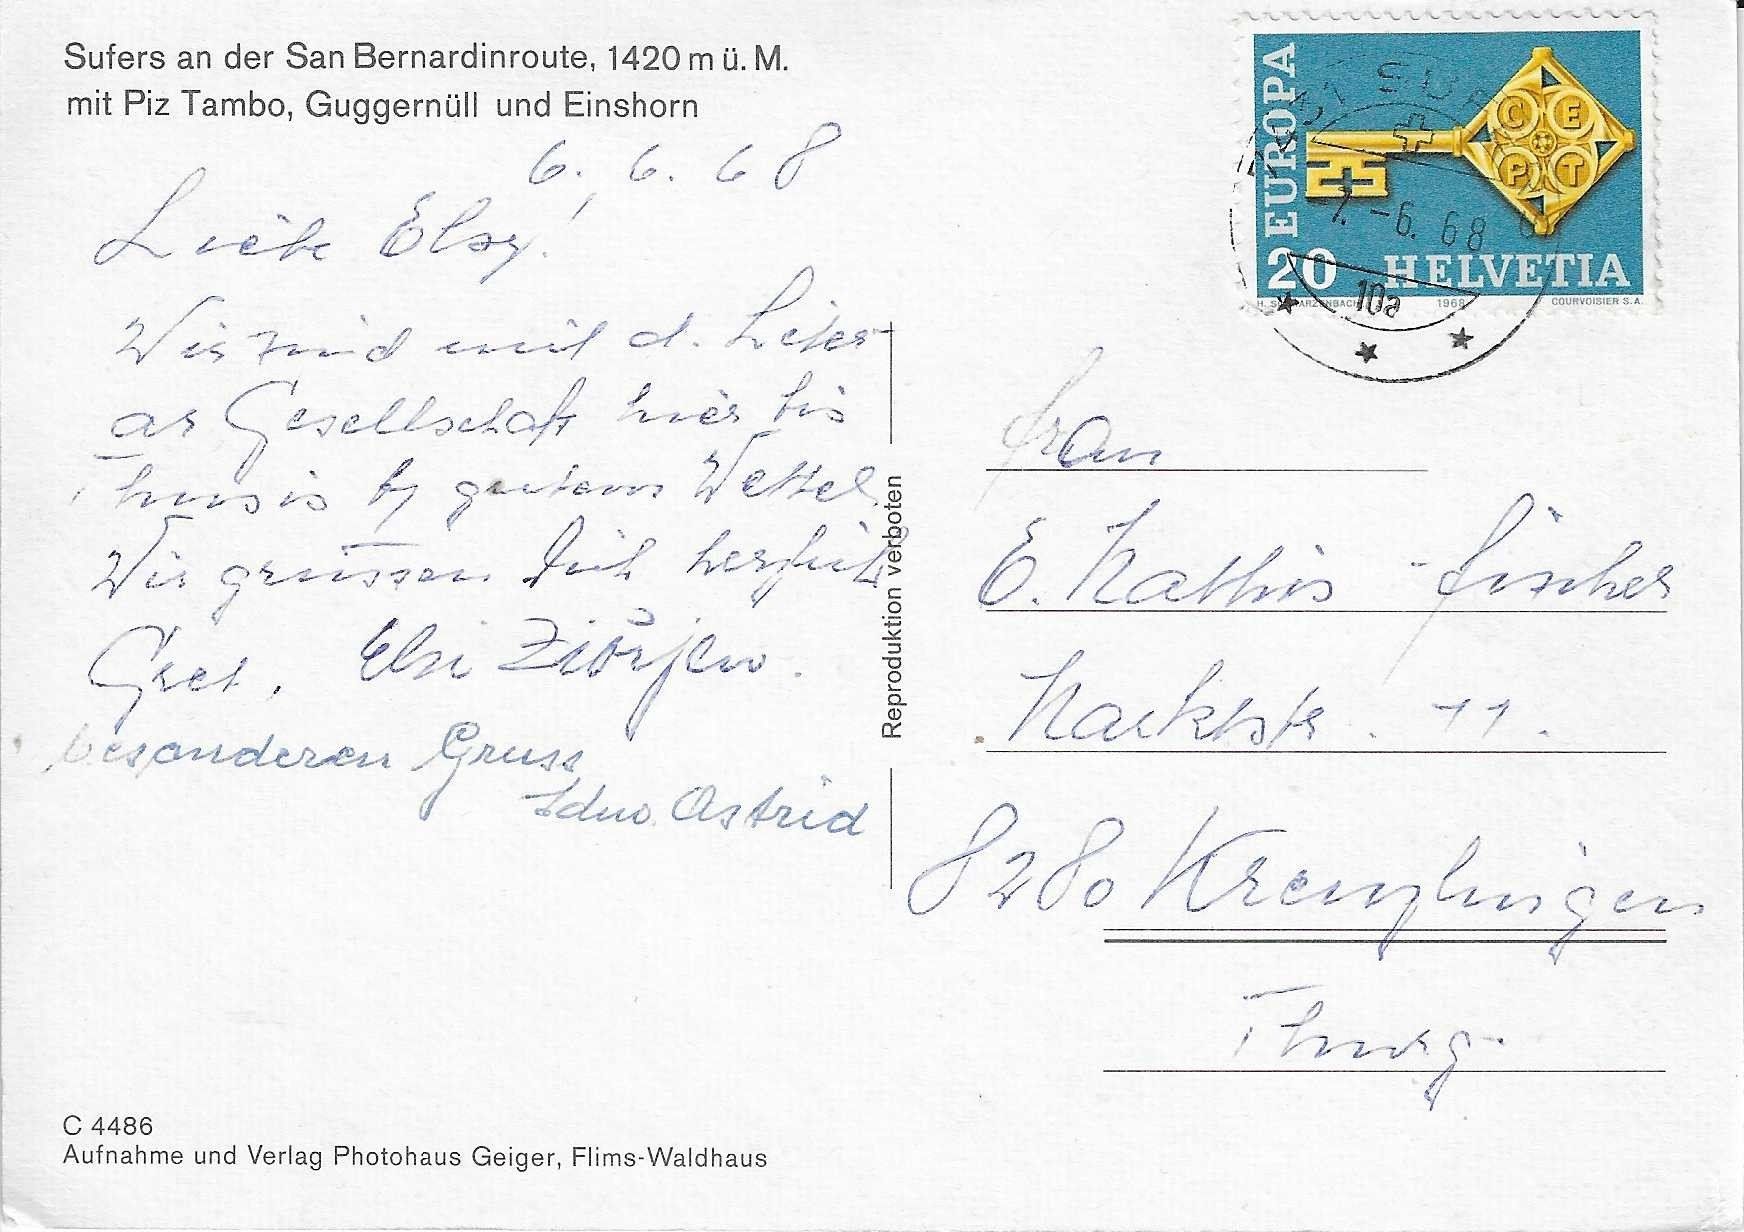 Sufers an der San Bernardinroute, 1420 m ü. M.
mit Piz Tambo, Guggernüll und Einshorn
6. 6. 68
Liebe Elsy!
Wir sind mit d. Liter-
ar Gesellschaft hier bis
Thusis by gutem Wetter.
Wir grüssen Dich herzlich
Gret. Elsi
besonderen Gruss
Astrid
Reproduktion verboten
EUROPA
CEPT
20 HELVETIA
1968 COURVOISIER S.A.
7.-6.68
10a
Frau
E. Mathis-Fischer
Marktstr. 11.
8280 Kreuzlingen
Thurg.
C 4486
Aufnahme und Verlag Photohaus Geiger, Flims-Waldhaus